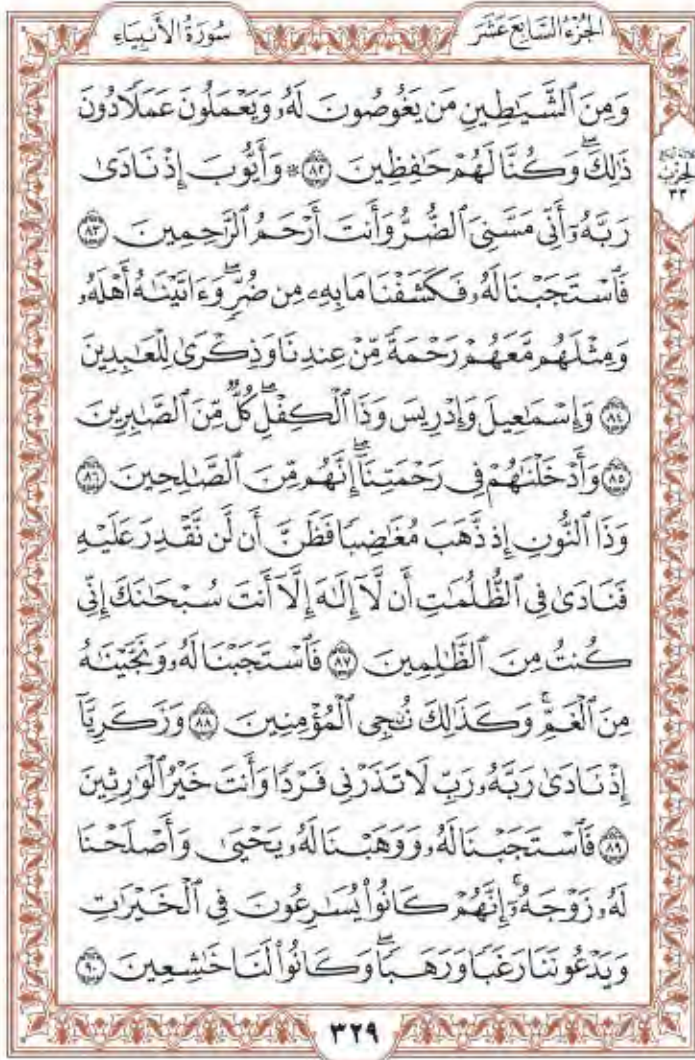 الجُزْءُ السَّابِعَ عَشَرَ
سُورَةُ الأَنبِيَاءِ
وَمِنَ ٱلشَّيَٰطِينِ مَن يَغُوصُونَ لَهُۥ وَيَعْمَلُونَ عَمَلًا دُونَ
ذَٰلِكَۖ وَكُنَّا لَهُمْ حَٰفِظِينَ ٨٢ ۞ وَأَيُّوبَ إِذْ نَادَىٰ
رَبَّهُۥٓ أَنِّي مَسَّنِيَ ٱلضُّرُّ وَأَنتَ أَرْحَمُ ٱلرَّٰحِمِينَ ٨٣
فَٱسْتَجَبْنَا لَهُۥ فَكَشَفْنَا مَا بِهِۦ مِن ضُرٍّۖ وَءَاتَيْنَٰهُ أَهْلَهُۥ
وَمِثْلَهُم مَّعَهُمْ رَحْمَةً مِّنْ عِندِنَا وَذِكْرَىٰ لِلْعَٰبِدِينَ
٨٤ وَإِسْمَٰعِيلَ وَإِدْرِيسَ وَذَا ٱلْكِفْلِۖ كُلٌّ مِّنَ ٱلصَّٰبِرِينَ
٨٥ وَأَدْخَلْنَٰهُمْ فِي رَحْمَتِنَآۖ إِنَّهُم مِّنَ ٱلصَّٰلِحِينَ ٨٦
وَذَا ٱلنُّونِ إِذ ذَّهَبَ مُغَٰضِبًا فَظَنَّ أَن لَّن نَّقْدِرَ عَلَيْهِ
فَنَادَىٰ فِي ٱلظُّلُمَٰتِ أَن لَّآ إِلَٰهَ إِلَّآ أَنتَ سُبْحَٰنَكَ إِنِّي
كُنتُ مِنَ ٱلظَّٰلِمِينَ ٨٧ فَٱسْتَجَبْنَا لَهُۥ وَنَجَّيْنَٰهُ
مِنَ ٱلْغَمِّۚ وَكَذَٰلِكَ نُـۨجِي ٱلْمُؤْمِنِينَ ٨٨ وَزَكَرِيَّآ
إِذْ نَادَىٰ رَبَّهُۥ رَبِّ لَا تَذَرْنِي فَرْدًا وَأَنتَ خَيْرُ ٱلْوَٰرِثِينَ
٨٩ فَٱسْتَجَبْنَا لَهُۥ وَوَهَبْنَا لَهُۥ يَحْيَىٰ وَأَصْلَحْنَا
لَهُۥ زَوْجَهُۥٓۚ إِنَّهُمْ كَانُوا۟ يُسَٰرِعُونَ فِي ٱلْخَيْرَٰتِ
وَيَدْعُونَنَا رَغَبًا وَرَهَبًاۖ وَكَانُوا۟ لَنَا خَٰشِعِينَ ٩٠
الحِزْبِ
٣٣
٣٢٩